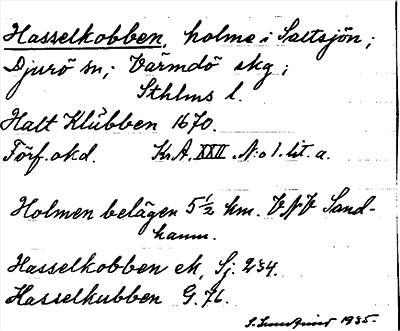 Hasselkobben, holme i Saltsjön;
Djurö sn; Värmdö skg;
Sthlms l.
Halt Klubben 1670.
Förf. okd. K.A. XXII. N:o 1. lit. a.
Holmen belägen 5 1/2 km. VNV Sand-
hamn.
Hasselkobben ek, Sj. 234.
Hasselkubben G. 76.
1935.